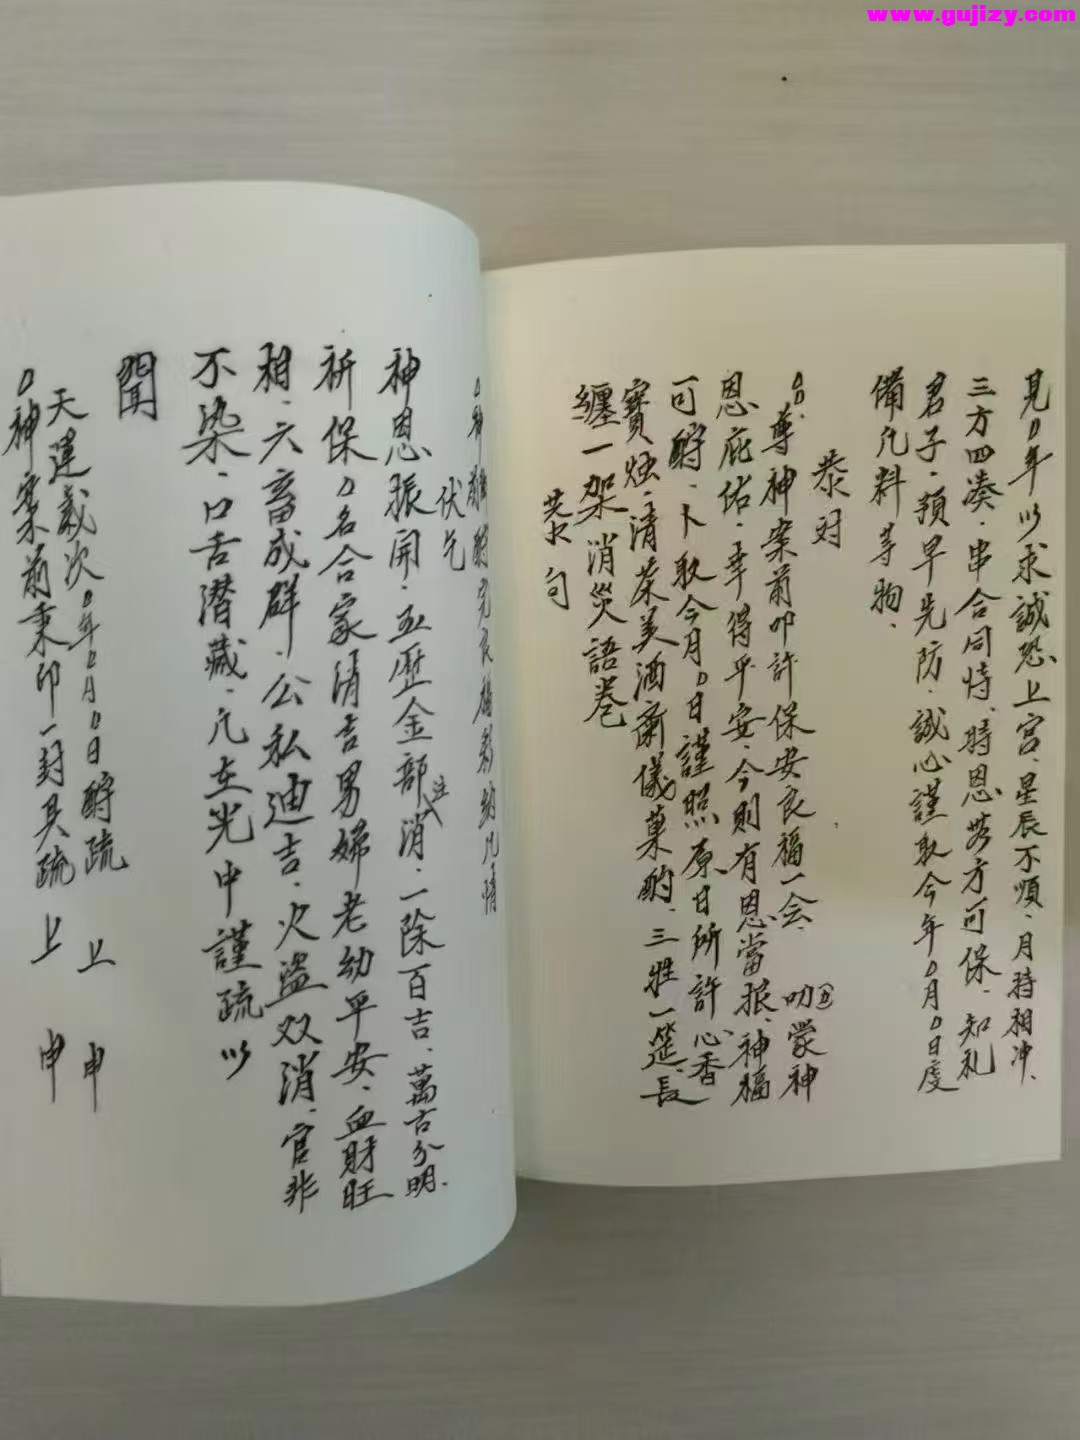 www.gujizy.com
見0年以求誠恐上宮、星辰不順、月時相冲、
三方四凑、串合同恃、時恩芳方可保、知礼
君子、預早先防、誠心謹取今年0月0日度
備凡料等物、
恭对
00尊神案前叩許保安良福一会、叨蒙神
恩庇佑、幸得平安、今則有恩當报、神福
可酧、卜取今月0日謹照原日所許心香
寳烛、清茶美酒斎儀菓酌、三牲一筵、長
纏一架消災語巻
恭句
0神前酧完良福彩納凡情
伏乞
神恩振開、五歷金部消、一除百吉、萬古分明.
注
祈保0名合家清吉男婦老幼平安、血財旺
相、六畜成群、公私迪吉、火盗双消、官非
不染、口舌潜藏、凢在光中謹疏以
聞
天運歲次0年0月0日酧疏上申
0神案前秉印一封具疏上申